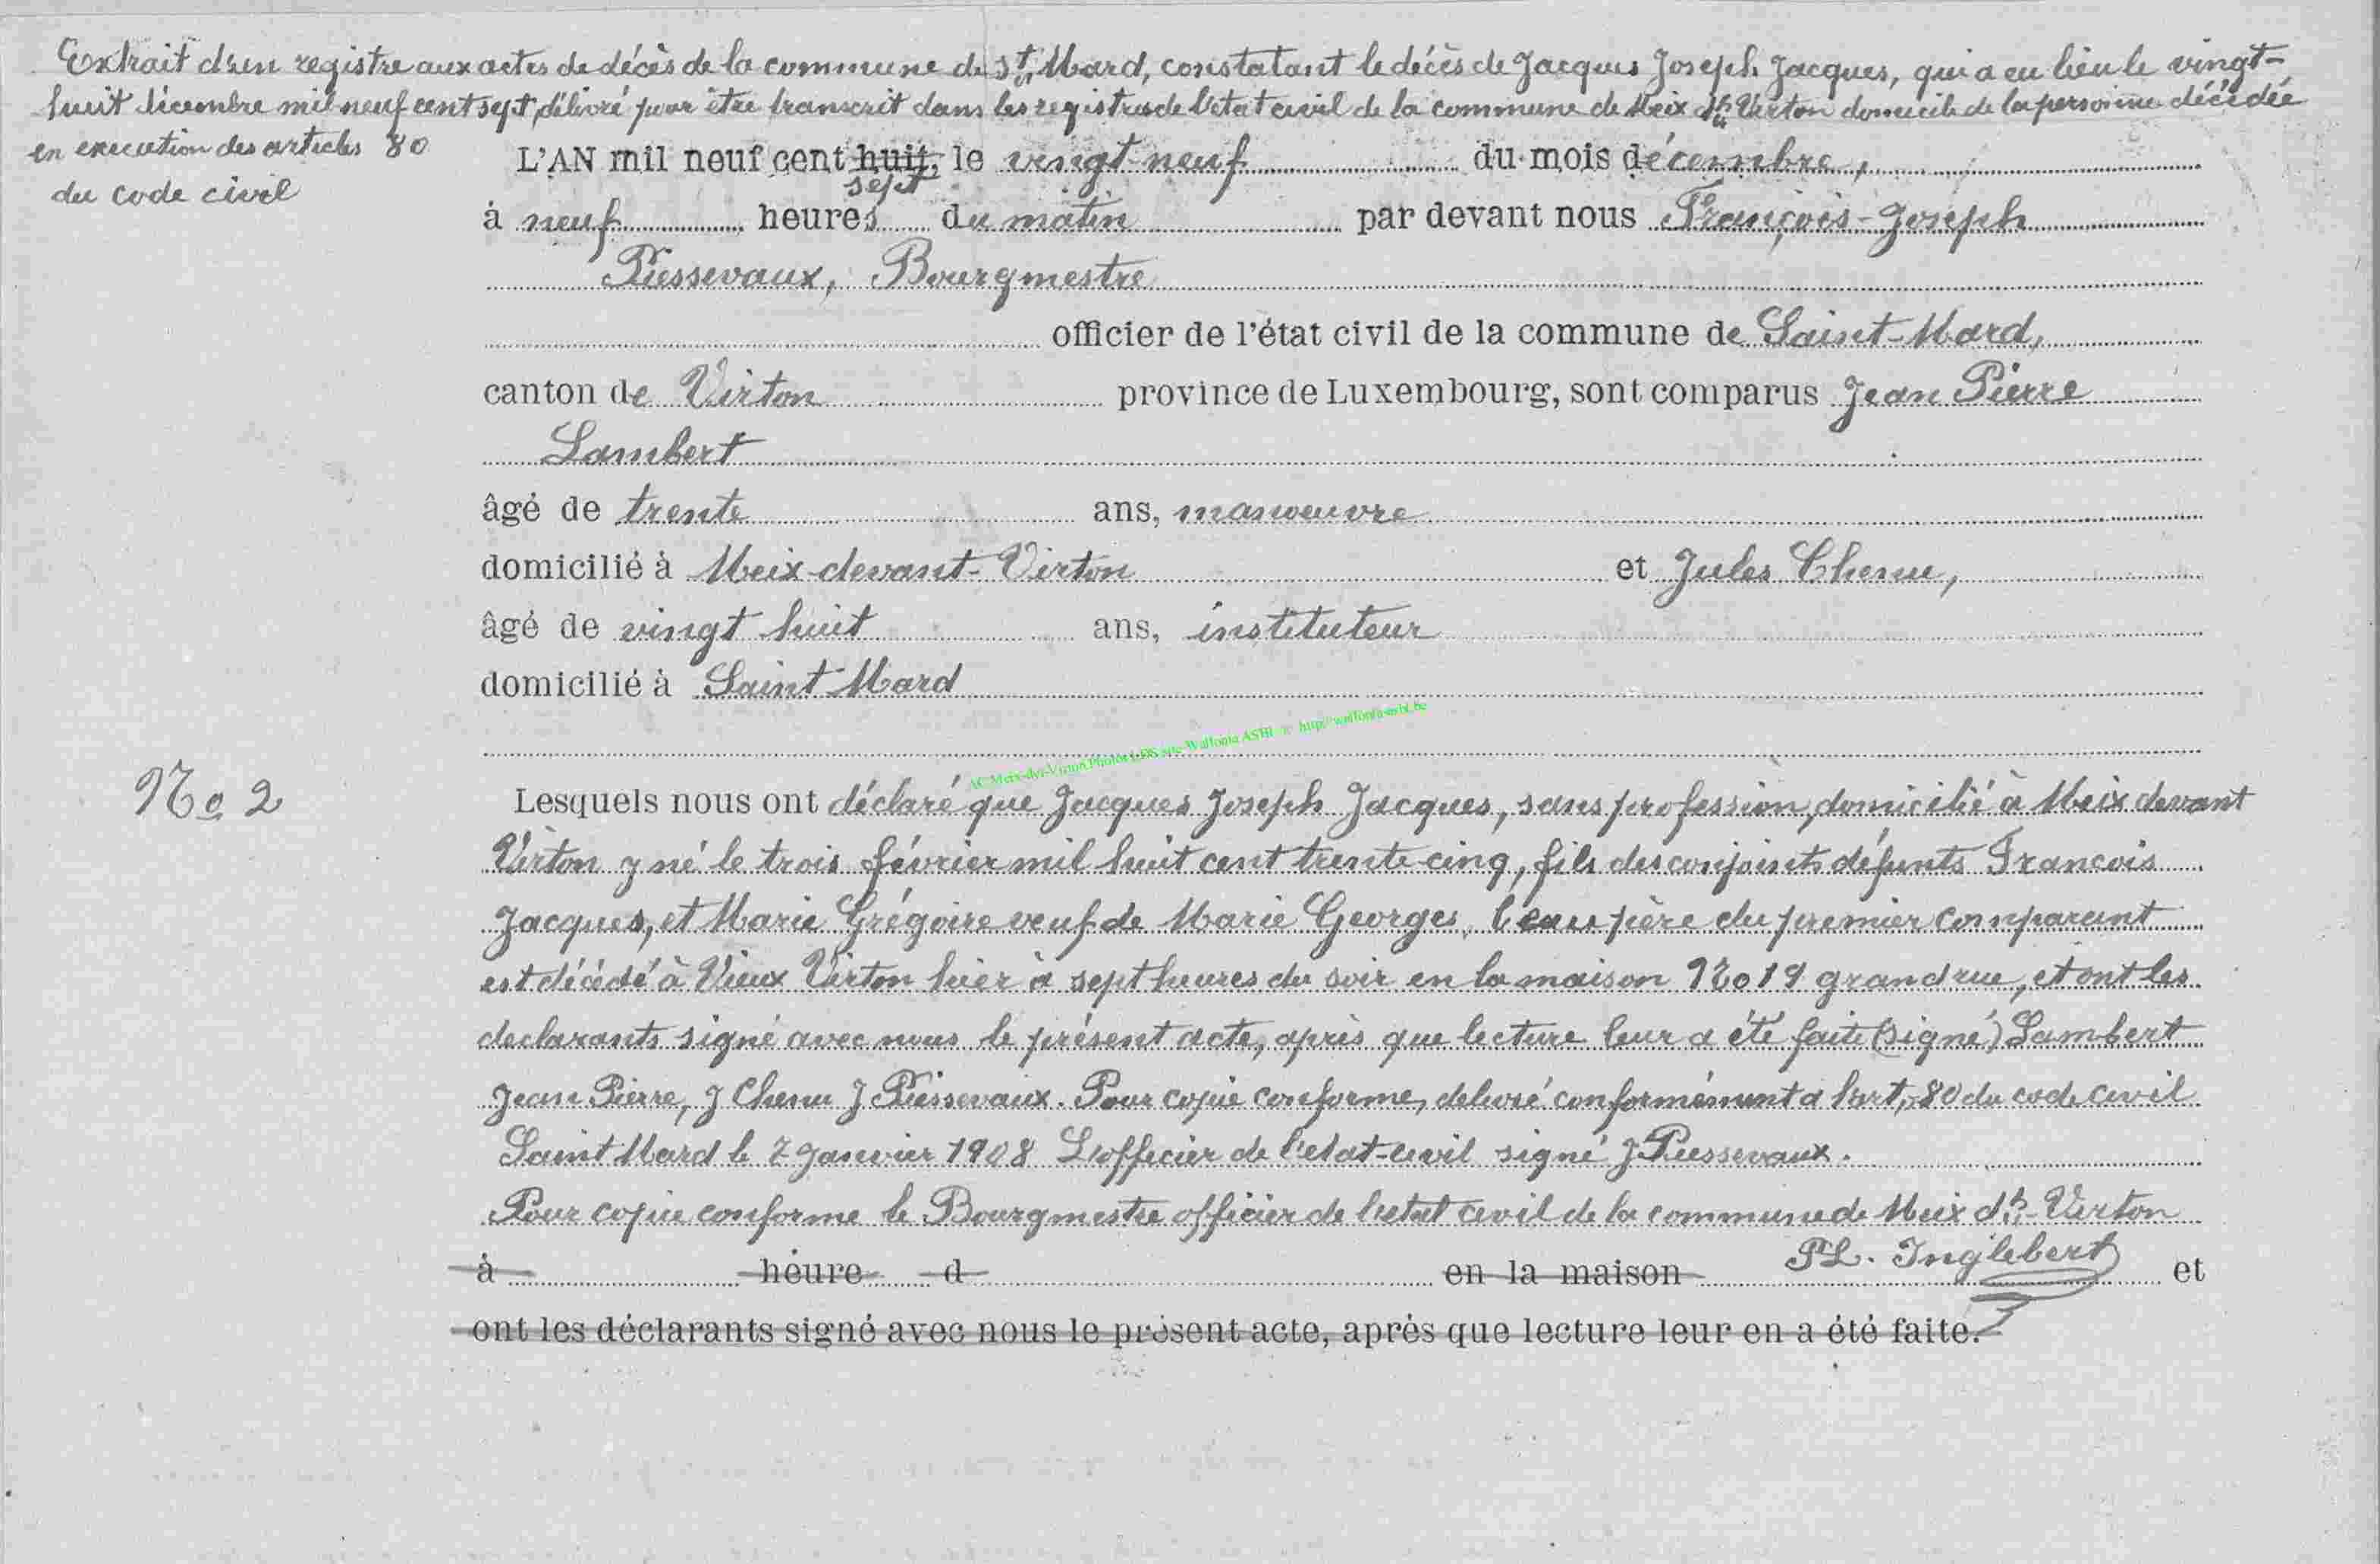 Extrait d'un registre aux actes de décès de la commune de St Mard, constatant le décès de Jacques Joseph Jacques, qui a eu lieu le vingt-
huit décembre mil neuf cent sept, délivré pour être transcrit dans les registres de l'état civil de la commune de Meix dt Virton domicile de la personne décédée
en execution des articles 80
du code civil
L'AN mil neuf cent huit, le vingt-neuf du mois décembre,
sept
à neuf heures du matin par devant nous François-Joseph
Piessevaux, Bourgmestre
officier de l'état civil de la commune de Saint-Mard,
canton de Virton province de Luxembourg, sont comparus Jean Pierre
Lambert
âgé de trente ans, manoeuvre
domicilié à Meix-devant-Virton et Jules Chenu,
âgé de vingt huit ans, instituteur
domicilié à Saint Mard
AC Meix-dvt-Virton Photos LDS site Wallonia ASBL http://wallonia-asbl.be
No 2
Lesquels nous ont déclaré que Jacques Joseph Jacques, sans profession, domicilié à Meix devant
Virton y né le trois février mil huit cent trente cinq, fils des conjoints défunts Francois
Jacques, et Marie Grégoire veuf de Marie Georges, beau père du premier comparant
est décédé à Vieux Virton hier à sept heures du soir en la maison No 19 grand rue, et ont les
declarants signé avec nous le présent acte, après que lecture leur a été faite (signé) Lambert
Jean Pierre, J Chenu J Piessevaux. Pour copie conforme, delivré conformément à l'art, 80 du code civil
Saint Mard le 2 Janvier 1908 L'officier de l'etat-civil signé J Piessevaux.
Pour copie conforme le Bourgmestre officier de l'etat civil de la commune de Meix dt-Virton
à heure d en la maison PL. Inglebert et
ont les déclarants signé avec nous le présent acte, après que lecture leur en a été faite.